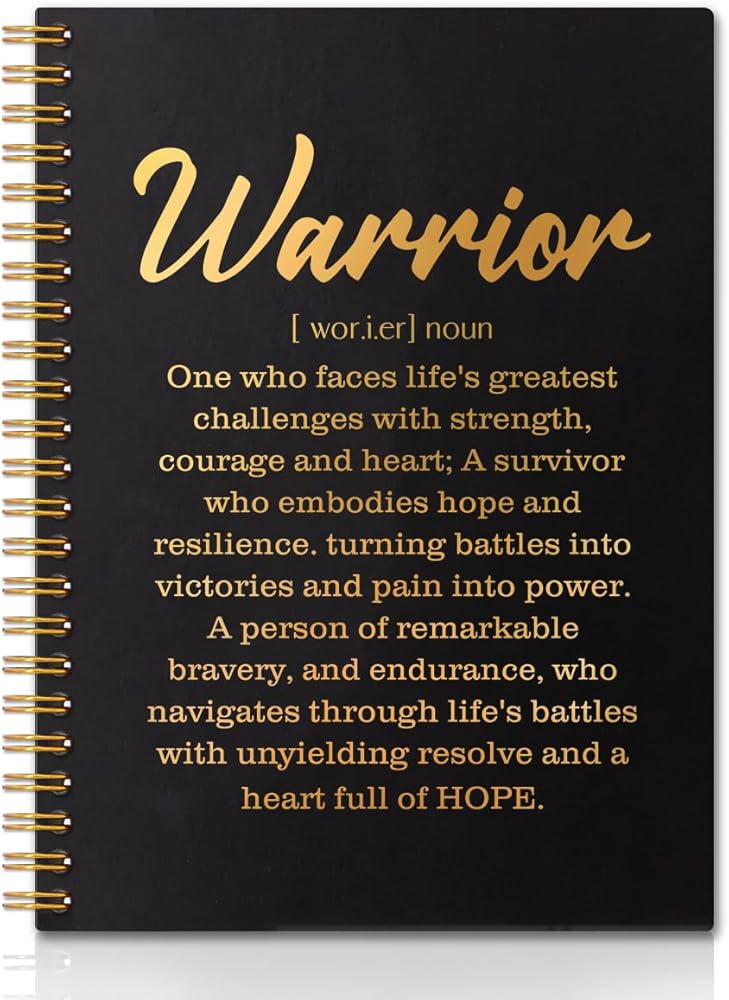 Warrior
[ wor.i.er] noun
One who faces life's greatest
challenges with strength,
courage and heart; A survivor
who embodies hope and
resilience. turning battles into
victories and pain into power.
A person of remarkable
bravery, and endurance, who
navigates through life's battles
with unyielding resolve and a
heart full of HOPE.